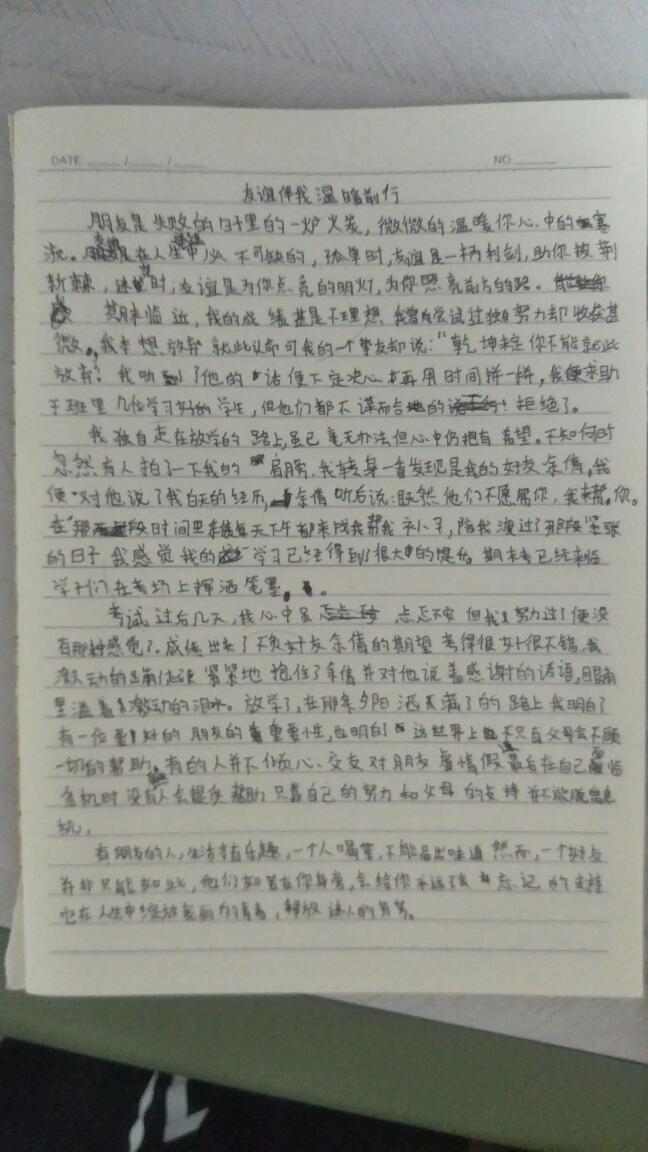 DATE ___/___/___ NO.___
友谊伴我温暖前行
朋友是失败的日子里的一炉火炭，微微的温暖你心中的寒
流。友谊是在人生中必不可缺的，孤单时，友谊是一柄利剑，助你披荆
斩棘，迷茫时，友谊是为你点亮的明灯，为你照亮前方的路。
期末临近，我的成绩甚是不理想，我曾尝试过独自努力却收获甚
微。我本想放弃就此认命可我的一个挚友却说："乾坤未定你不能就此
放弃！我听到了他的话便下定决心再用时间拼一拼，我便求助
于班里几位学习好的学生，但他们都不谋而合地的拒绝了。
我独自走在放学的路上，虽已毫无办法但心中仍抱有希望。不知何时
忽然有人拍了一下我的肩膀，我转身一看发现是我的好友余倩，我
便对他说了我白天的经历，余倩听后说：既然他们不愿帮你，我来帮你。
在那段时间里余倩每天下午都来找我帮我补小子，陪我渡过了那段紧张
的日子，我感觉我的学习已经得到了很大的提升。期末考已经来临
学子们在考场上挥洒笔墨。
考试过后几天，我心中虽忐忑不安但我努力过了便没
有那种感觉了。成绩出来了不负好友余倩的期望考得很好很不错，我
激动的蹦了起来紧紧地抱住了余倩并对他说着感谢的话语，眼角
里溢着激动的泪水。放学了，在那条夕阳洒满了的路上我明白了
有一位好的朋友的重要性，也明白了这世界上不只有父母会不顾
一切的帮助。有的人并不倾心、交友对朋友虚情假意最后在自己面临
危机时没有人会提供帮助只靠自己的努力和父母的支持并不能脱离危
机。
有朋友的人，生活才有乐趣，一个人喝茶，不能品出味道然而，一个好友
并非只能如此，他们如若在你身旁，会给你永远不会忘记的支持
它在人生中绽放